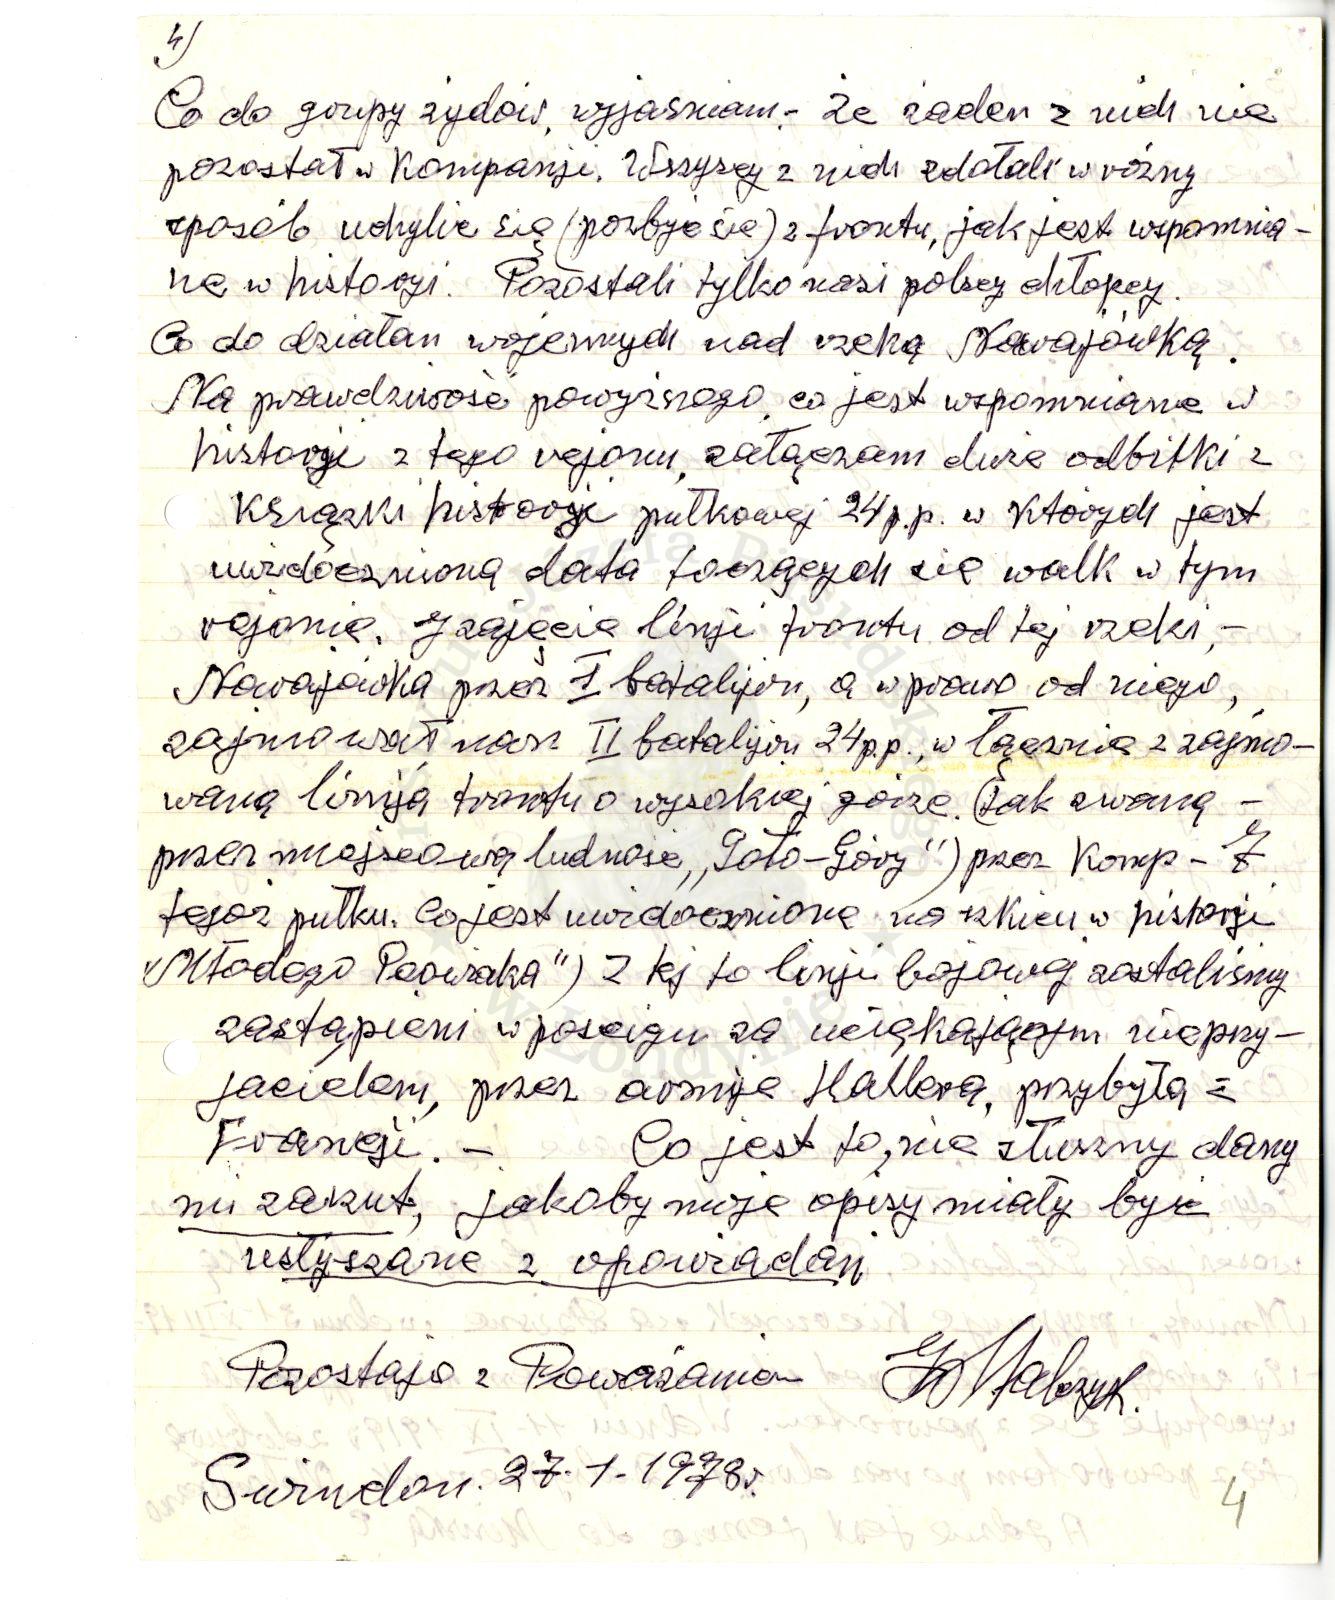 4)
Co do grupy żydów, wyjaśniam, - że żaden z nich nie
pozostał w Kompanji. Wszyscy z nich zdołali w różny
sposób uchylić się (pozbyć się) z frontu, jak jest wspomnia-
ne w historji. Pozostali tylko nasi polscy chłopcy.
Co do działań wojennych nad rzeką Nawajówką.
Na prawdziwość powyższego, co jest wspomniane w
historji z tego rejonu, załączam duże odbitki z
Książki historji pułkowej 24 p.p. w których jest
uwidoczniona data toczących się walk w tym
rejonie. I zajęcie linji frontu od tej rzeki, -
Nawajówka przez I batalijon, a w prawo od niego,
zajmował nasz II batalijon 24 p.p., w łącznie z zajmo-
waną linją frontu o wysokiej górze. (tak zwaną -
przez miejscową ludność „Goło-Góry") przez Komp - 7
tegoż pułku. Co jest uwidocznione na szkicu w historji
„Młodego Peowiaka") Z tej to linji bojowej zostaliśmy
zastąpieni w pościgu za uciekającym nieprzy-
jacielem, przez armję Hallera, przybyłą z
Francji. - Co jest to, nie słuszny dany
mi zarzut, jakoby moje opisy miały być
usłyszane z opowiadań
Pozostaję z Poważaniem
Swindon. 27.1.1978r.
4